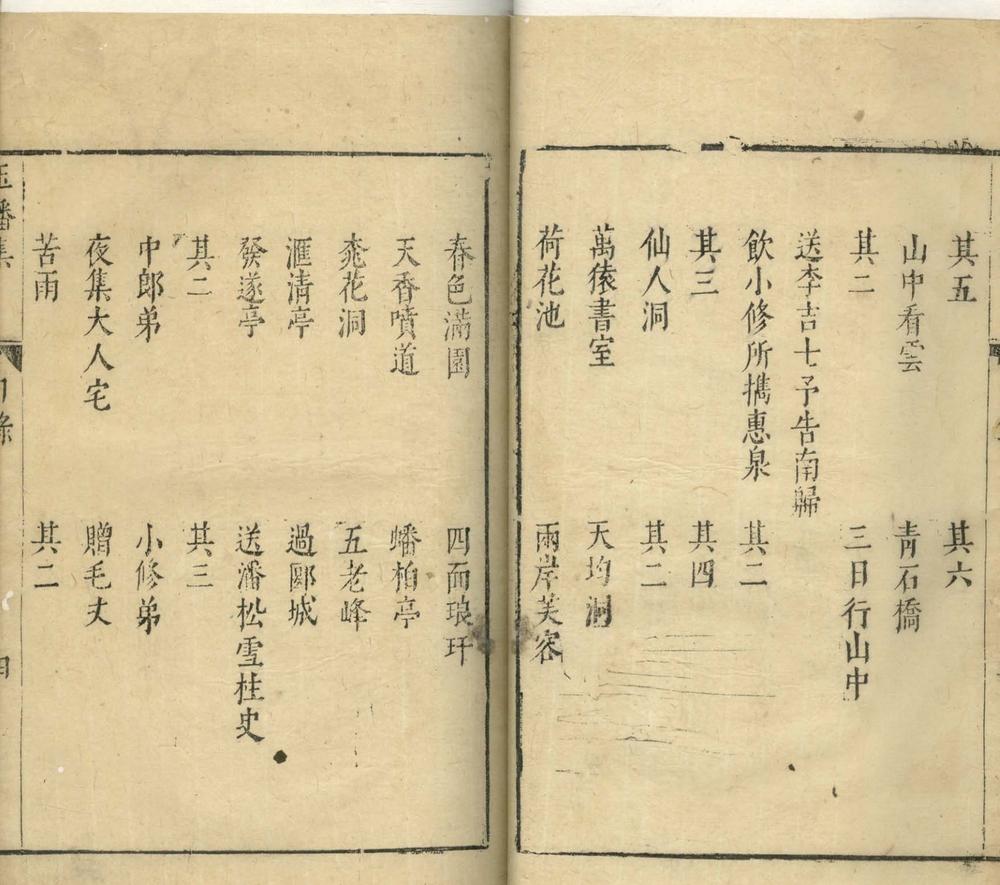 其五　其六
山中看雲　青石橋
其二　三日行山中
送李吉士予告南歸
飲小修所攜惠泉　其二
其三　其四
仙人洞　其二
萬猿書室　天均洞
荷花池　兩岸芙容
春色滿園　四面琅玕
天香噴道　蟠柏亭
桃花洞　五老峰
滙清亭　過郾城
發遂亭　送潘松雪柱史
其二　其三
中郎弟　小修弟
夜集大人宅　贈毛丈
苦雨　其二
玉蟠集　目錄　四